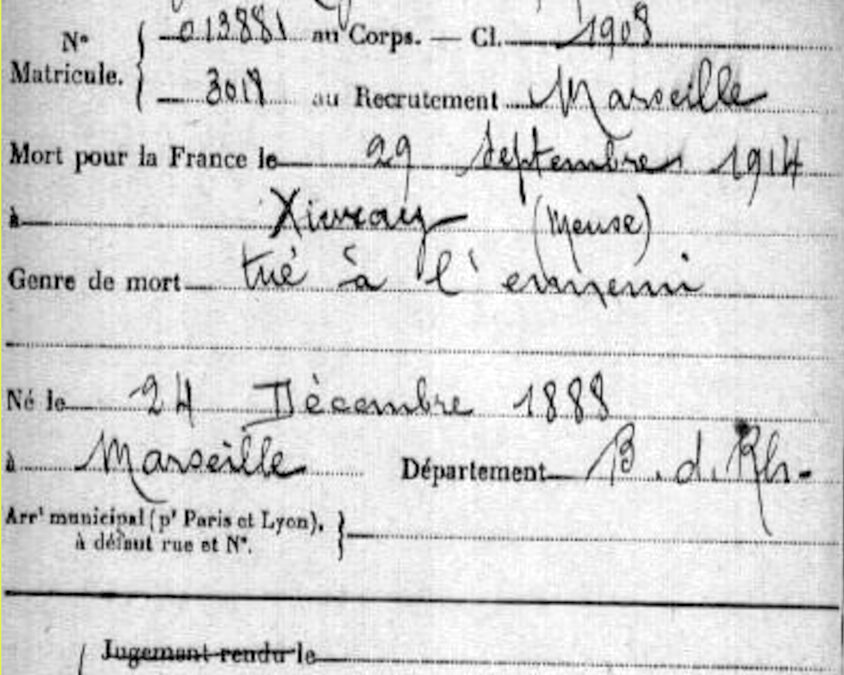 N° Matricule. { 013881 au Corps. — Cl. 1908
3018 au Recrutement Marseille
Mort pour la France le 29 Septembre 1914
à Xivray (Meuse)
Genre de mort tué à l'ennemi
Né le 24 Décembre 1888
à Marseille Département B. d. Rh.
Arrt municipal (pr Paris et Lyon), }
à défaut rue et N°.
{ Jugement rendu le